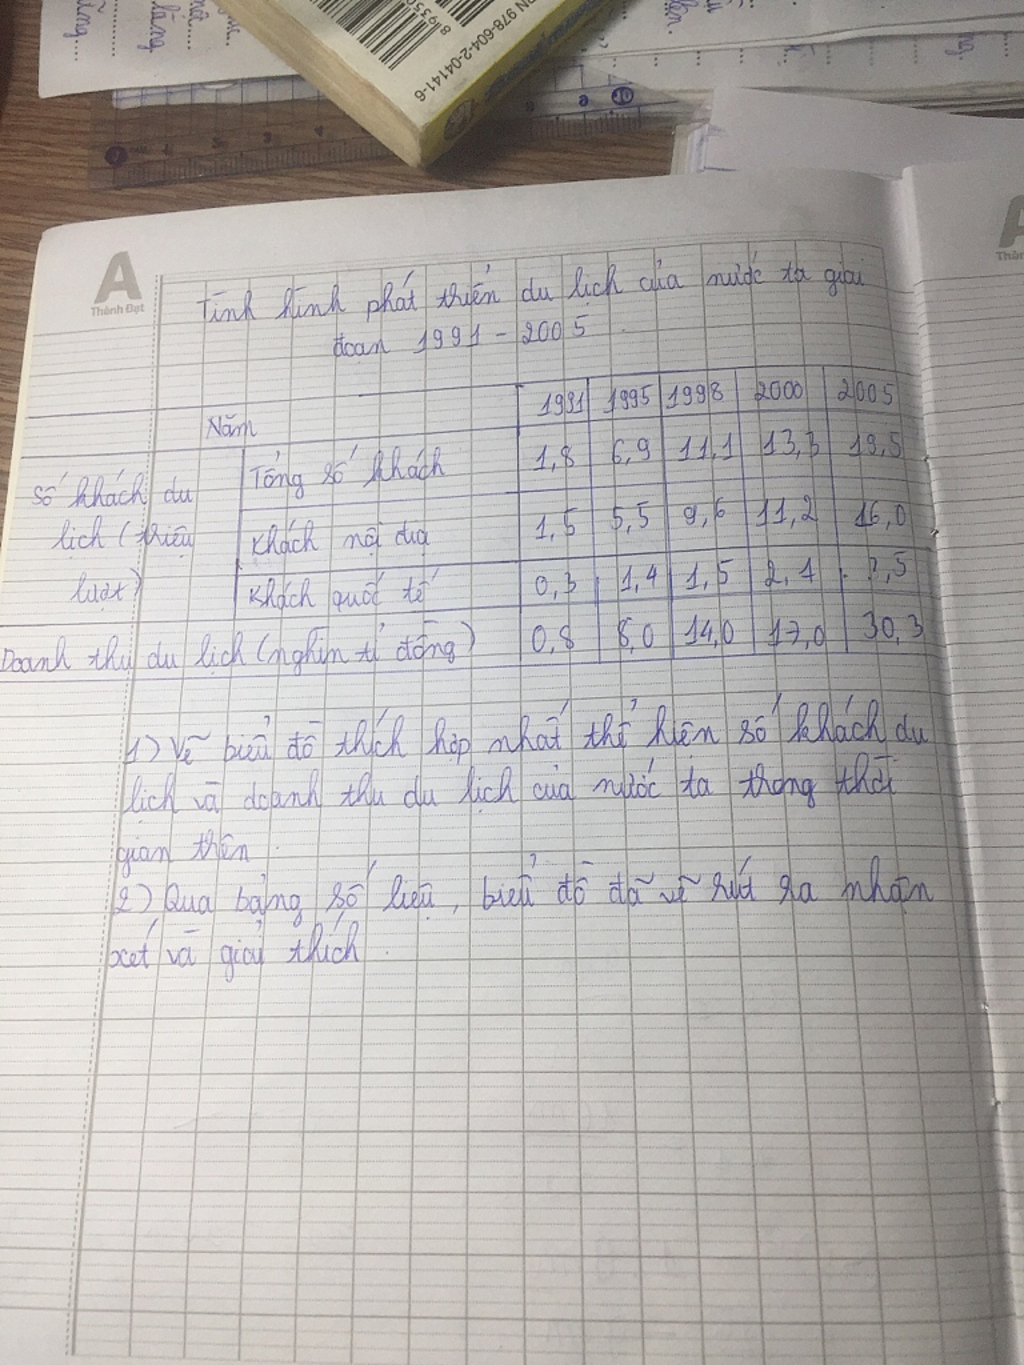 N 978-604-2-04141-6
A
Thành Đạt
Tình hình phát triển du lịch của nước ta giai
đoạn 1991 - 2005
Năm 1991 1995 1998 2000 2005
Số khách du lịch (triệu lượt)
Tổng số khách 1,8 6,9 11,1 13,3 19,5
Khách nội địa 1,5 5,5 9,6 11,2 16,0
Khách quốc tế 0,3 1,4 1,5 2,1 3,5
Doanh thu du lịch (nghìn tỉ đồng) 0,8 8,0 14,0 17,0 30,3
1) Vẽ biểu đồ thích hợp nhất thể hiện số khách du
lịch và doanh thu du lịch của nước ta trong thời
gian trên.
2) Qua bảng số liệu, biểu đồ đã vẽ rút ra nhận
xét và giải thích.